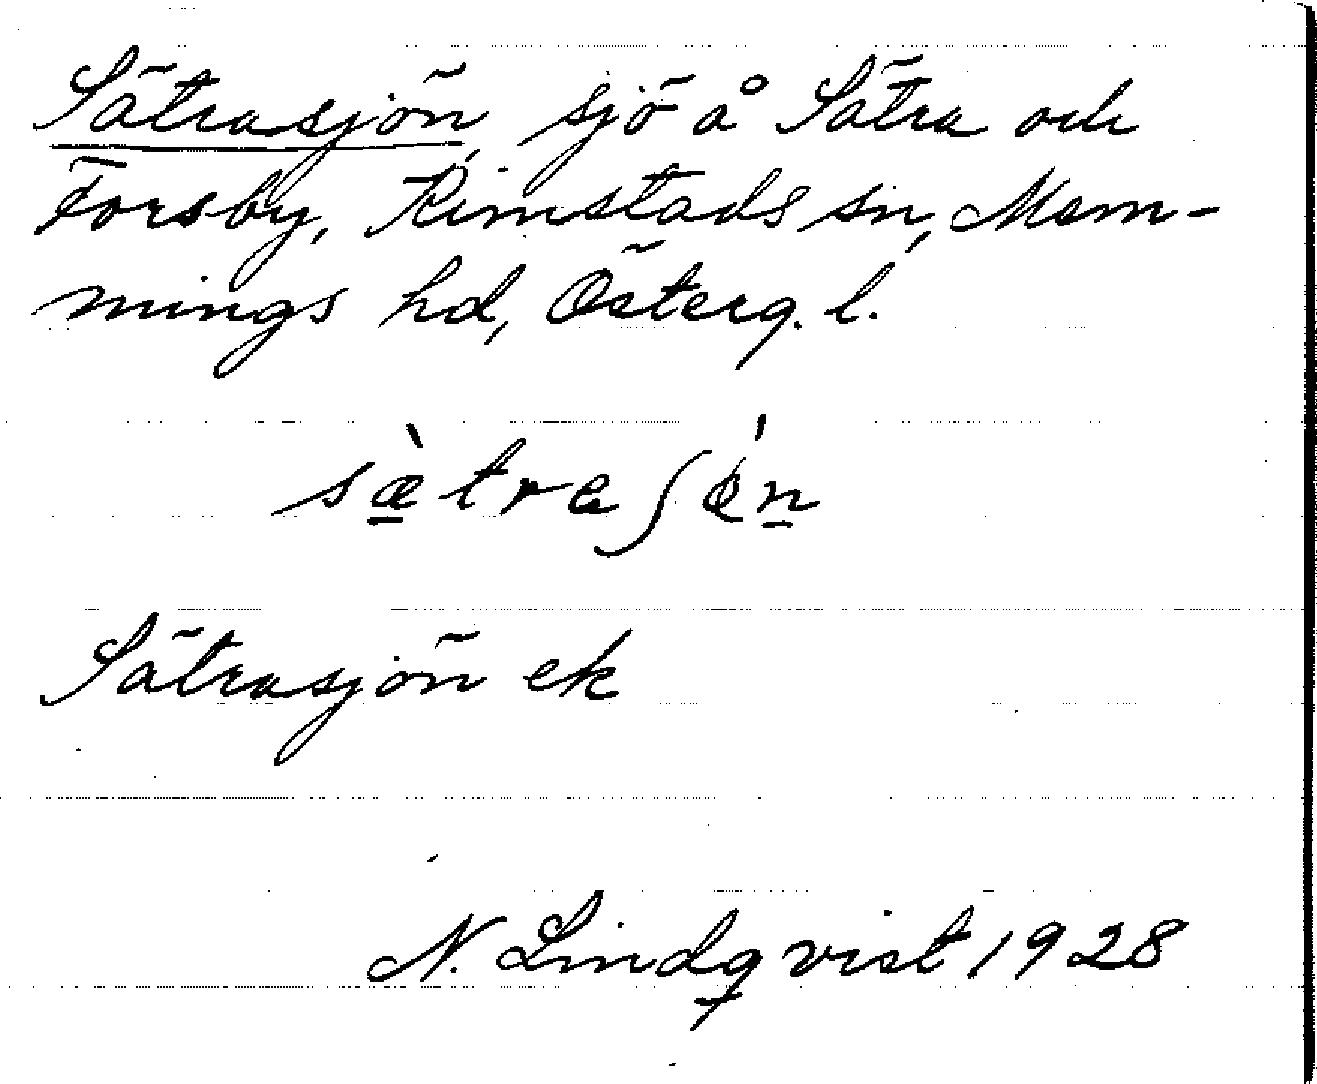 Sätrasjön, sjö å Sätra och
Forsby, Kimstads sn, Mem-
mings hd, Österg. l.
sæ̀traʃǿn
Sätrasjön ek
N. Lindqvist 1928